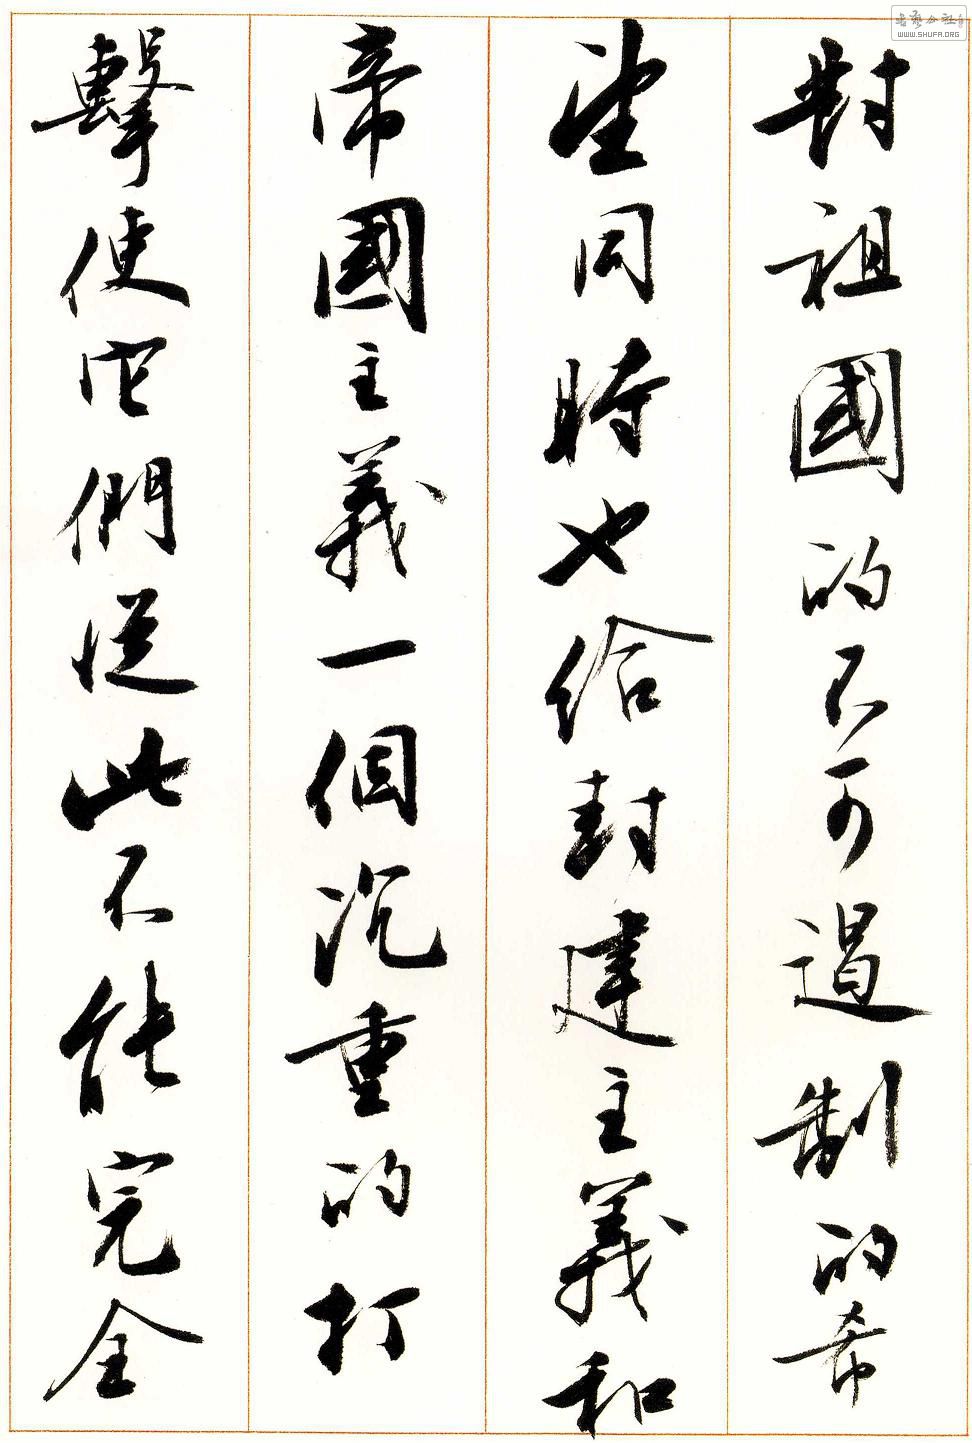 對祖國的不可遏制的希
望同時也給封建主義和
帝國主義一個沉重的打
擊使它們從此不能完全
WWW.SHUFA.ORG